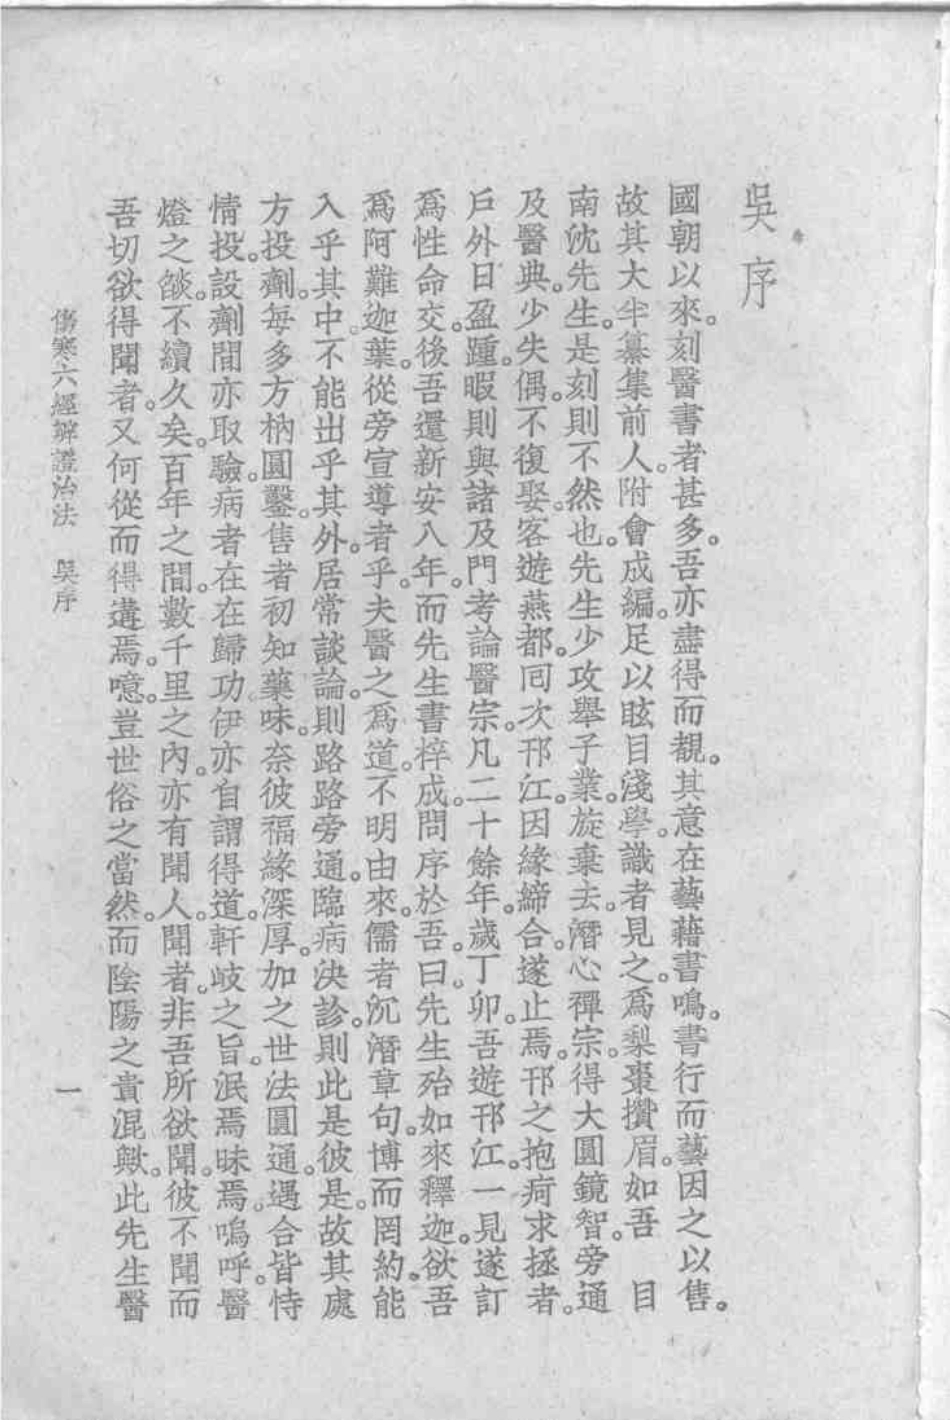 吳序
國朝以來。刻醫書者甚多。吾亦盡得而覩。其意在藝藉書鳴。書行而藝因之以售。
故其大半纂集前人。附會成編。足以眩目淺學。識者見之。爲梨棗攢眉。如吾 目
南沈先生。是刻則不然也。先生少攻舉子業。旋棄去。潛心禪宗。得大圓鏡智。旁通
及醫典。少失偶。不復娶。客遊燕都。囘次邗江。因緣締合。遂止焉。邗之抱疴求拯者。
戶外日盈踵。暇則與諸及門考論醫宗。凡二十餘年。歲丁卯。吾遊邗江。一見遂訂
爲性命交。後吾還新安八年。而先生書梓成。問序於吾。吾曰。先生殆如來釋迦。欲吾
爲阿難迦葉。從旁宣導者乎。夫醫之爲道。不明由來。儒者沉潛章句。博而罔約。能
入乎其中。不能出乎其外。居常談論。則路路旁通。臨病決診。則此是彼是。故其處
方投劑。每多方枘圓鑿。售者初知藥味。奈彼福緣深厚。加之世法圓通。遇合皆恃
情投。設劑間亦取驗。病者在在歸功。伊亦自謂得道。軒岐之旨。泯焉昧焉。嗚呼。醫
燈之燄。不續久矣。百年之間。數千里之內。亦有聞人。聞者。非吾所欲聞。彼不聞而
吾切欲得聞者。又何從而得遘焉。噫。豈世俗之當然。而陰陽之賁混歟。此先生醫
傷寒六經辨證治法 吳序 一